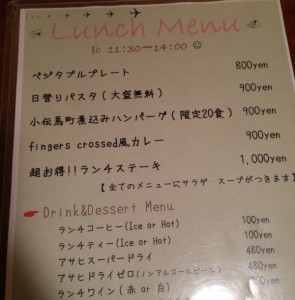 Lunch Menu
11:30ー14:00
ベジタブルプレート 800yen
日替りパスタ(大盛無料) 900yen
小伝馬町煮込みハンバーグ(限定20食) 900yen
fingers crossed風カレー 900yen
超お得!!ランチステーキ 1,000yen
【全てのメニューにサラダ スープがつきます】
Drink&Dessert Menu
ランチコーヒー(Ice or Hot) 100yen
ランチティー(Ice or Hot) 100yen
アサヒスーパードライ 480yen
アサヒドライゼロ(ノンアルコールビール) 480yen
ランチワイン(赤 or 白)